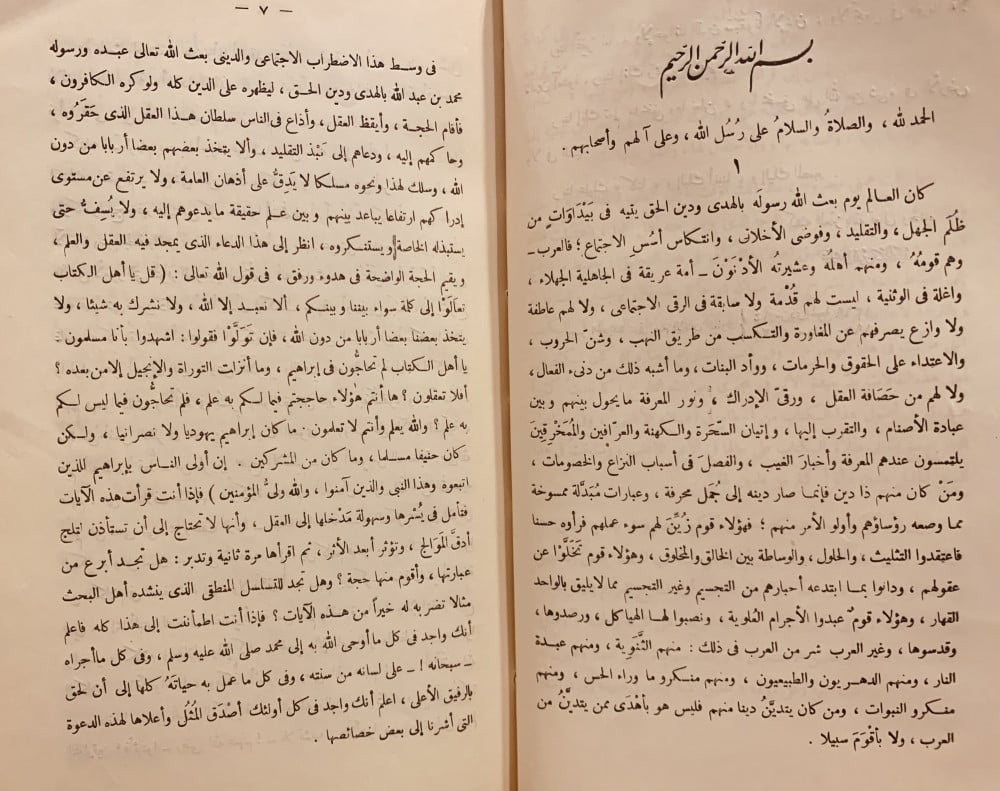 بسم الله الرحمن الرحيم
الحمد لله ، والصلاةُ والسلامُ على رُسُل الله ، وعلى آلهم وأصحابهم .
١
كان العالم يوم بعث الله رسولَه بالهدى ودين الحق يتيه فى بَيْدَاوَاتٍ من
ظُلَم الجهل ، والتقليد ، وفوضى الأخلاق ، وانتكاس أُسُسِ الاجتماع ؛ فالعرب ــ
وهم قومُهُ ، ومنهم أهلُه وعشيرتُه الأدْنَوْنَ ــ أمة عريقة فى الجاهلية الجهلاء ،
واغلة فى الوثنية ، ليست لهم قُدْمة ولا سابقة فى الرقى الاجتماعى ، ولا لهم عاطفة
ولا وازع يصرفهم عن المغاورة والتكسب من طريق النهب ، وشنّ الحروب ،
والاعتداء على الحقوق والحرمات ، ووأد البنات ، وما أشبه ذلك من دنىء الفعال ،
ولا لهم من حَصَافة العقل ، ورقىّ الإدراك ، ونور المعرفة ما يحول بينهم وبين
عبادة الأصنام ، والتقرب إليها ، وإتيان السَّحَرة والكهنة والعرافين والمُمَخْرِقِينَ
يلتمسون عندهم المعرفة وأخبارَ الغيب ، والفصلَ فى أسباب النزاع والخصومات ،
ومَنْ كان منهم ذا دين فإنما صار دينه إلى جُمَل محرفة ، وعبارات مُبَدَّلة ممسوخة
مما وصعه رؤساؤهم وأولو الأمر منهم ؛ فهؤلاء قوم زُيِّنَ لهم سوء عملهم فرأوه حسنا
فاعتقدوا التثليث ، والحلول ، والوساطة بين الخالق والمخلوق ، وهؤلاء قوم تَخَلَّوْا عن
عقولهم ، ودانوا بمـا ابتدعه أحبارهم من التجسيم وغير التجسيم مما لا يليق بالواحد
القهار ، وهؤلاء قومٌ عبدوا الأجرام العُلوية ، ونصبوا لهـا الهياكل ، ورصدوها ،
وقدسوها ، وغير العرب شر من العرب فى ذلك : منهم الثَّنَوِية ، ومنهم عبدة
النار ، ومنهم الدهريون والطبيعيون ، ومنهم منكرو ما وراء الحس ، ومنهم
منكرو النبوات ، ومن كان يتديَّنُ دينا منهم فليس هو بأهْدَى ممن يتديَّنُ من
العرب ، ولا بأقْوَمَ سبيلا .
— ٧ —
فى وسط هذا الاضطراب الاجتماعى والدينى بعث الله تعالى عبده ورسوله
محمد بن عبد الله بالهدى ودين الحق ، ليظهره على الدين كله ولو كره الكافرون ،
فأقام الحجة ، وأيقظ العقل ، وأذاع فى الناس سلطان هذا العقل الذى حَقَرُوه ،
وحاكمهم إليه ، ودعاهم إلى نَبْذ التقليد ، وألا يتخذ بعضهم بعضا أربابا من دون
الله ، وسلك لهذا ونحوه مسلكا لا يَدِقُّ على أذهان العامة ، ولا يرتفع عن مستوى
إدراكهم ارتفاعا يباعد بينهم وبين علم حقيقة ما يدعوهم إليه ، ولا يُسِفُّ حتى
يستبذله الخاصة ويستنكروه ، انظر إلى هذا الدعاء الذى يمجد فيه العقل والعلم ،
ويقيم الحجة الواضحة فى هدوء ورفق ، فى قول الله تعالى : ( قل يا أهل الكتاب
تعالَوْا إلى كلمة سواء بيننا وبينكم ، ألا نعبد إلا الله ، ولا نشرك به شيئا ، ولا
يتخذ بعضنا بعضا أربابا من دون الله ، فإن تَوَلَّوْا فقولوا : اشهدوا بأنا مسلمون .
يا أهل الكتاب لم تحاجُّون فى إبراهيم ، وما أنزلت التوراة والإنجيل إلا من بعده ؟
أفلا تعقلون ؟ ها أنتم هؤلاء حاججتم فيما لكم به علم ، فلم تحاجُّون فيما ليس لكم
به علم ؟ والله يعلم وأنتم لا تعلمون . ما كان إبراهيم يهوديا ولا نصرانيا ، ولكن
كان حنيفا مسلما ، وما كان من المشركين . إن أولى الناس بإبراهيم للذين
اتبعوه وهذا النبى والذين آمنوا ، والله ولىُّ المؤمنين ) فإذا أنت قرأت هذه الآيات
فتأمل فى يُسْرها وسهولة مَدْخلها إلى العقل ، وأنها لا تحتاج إلى أن تستأذن لتلج
أدقَّ المَوَالج ، وتؤثر أبعد الأثر ، ثم اقرأها مرة ثانية وتدبر : هل تجد أبرع من
عبارتها ، وأقوم منها حجة ؟ وهل تجد للتسلسل المنطقى الذى ينشده أهل البحث
مثالا تضربه له خيراً من هذه الآيات ؟ فإذا أنت اطمأننت إلى هذا كله فاعلم
أنك واجد فى كل ما أوحى الله به إلى محمد صلى الله عليه وسلم ، وفى كل ما أجراه
ــ سبحانه ! ــ على لسانه من سنته ، وفى كل ما عمل به حياتَهُ كلها إلى أن لحق
بالرفيق الأعلى ، اعلم أنك واجد فى كل أولئك أصْدَق المُثُل وأعلاها لهذه الدعوة
التى أشرنا إلى بعض خصائصها .